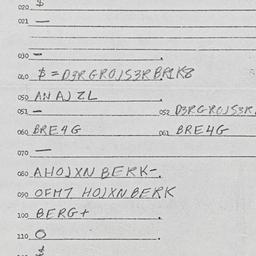 020 $
021 —
030 —
040 $=D3RGROJS3RBRK8
050 ANAJZL
051 — 052 D3RGROJS3R
060 BRE4G 061 BRE4G
070 —
080 AHOJXN BERK-
090 OFM7 HOJXNBERK
100 BERG+
110 O